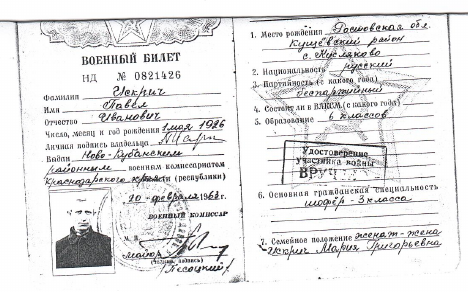 ВОЕННЫЙ БИЛЕТ
НД № 0821426
Фамилия Искрич
Имя Павел
Отчество Иванович
Число, месяц и год рождения 1 мая 1926
Личная подпись владельца
Выдан Ново-Кубанским
районным военным комиссариатом
Краснодарского края (республики)
20 февраля 1962 г.
ВОЕННЫЙ КОМИССАР
М. П.
майор
(звание, подпись)
Песоцкий
1. Место рождения Ростовская обл.
Кущёвский район
с.
2. Национальность русский
3. Партийность (с какого года)
беспартийный
4. Состоит ли в ВЛКСМ (с какого года)
5. Образование 6 классов
Удостоверение
участника войны
ВРУЧ
6. Основная гражданская специальность
шофёр - 3 класса
7. Семейное положение женат - жена
Искрич Мария Григорьевна